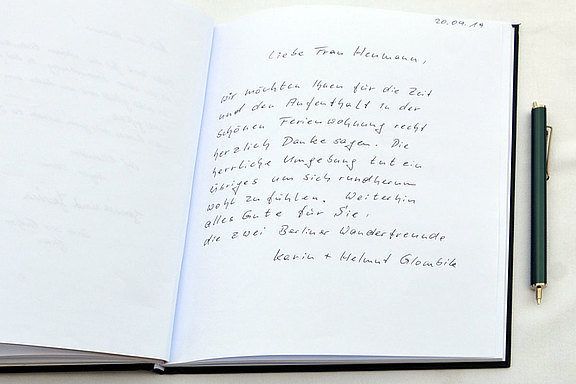 20.09.19
Liebe Frau Heumann,
wir möchten Ihnen für die Zeit
und den Aufenthalt in der
schönen Ferienwohnung recht
herzlich Danke sagen. Die
herrliche Umgebung tut ein
übriges um sich rundherum
wohl zu fühlen. Weiterhin
alles Gute für Sie,
die zwei Berliner Wanderfreunde
Karin + Helmut Glombik